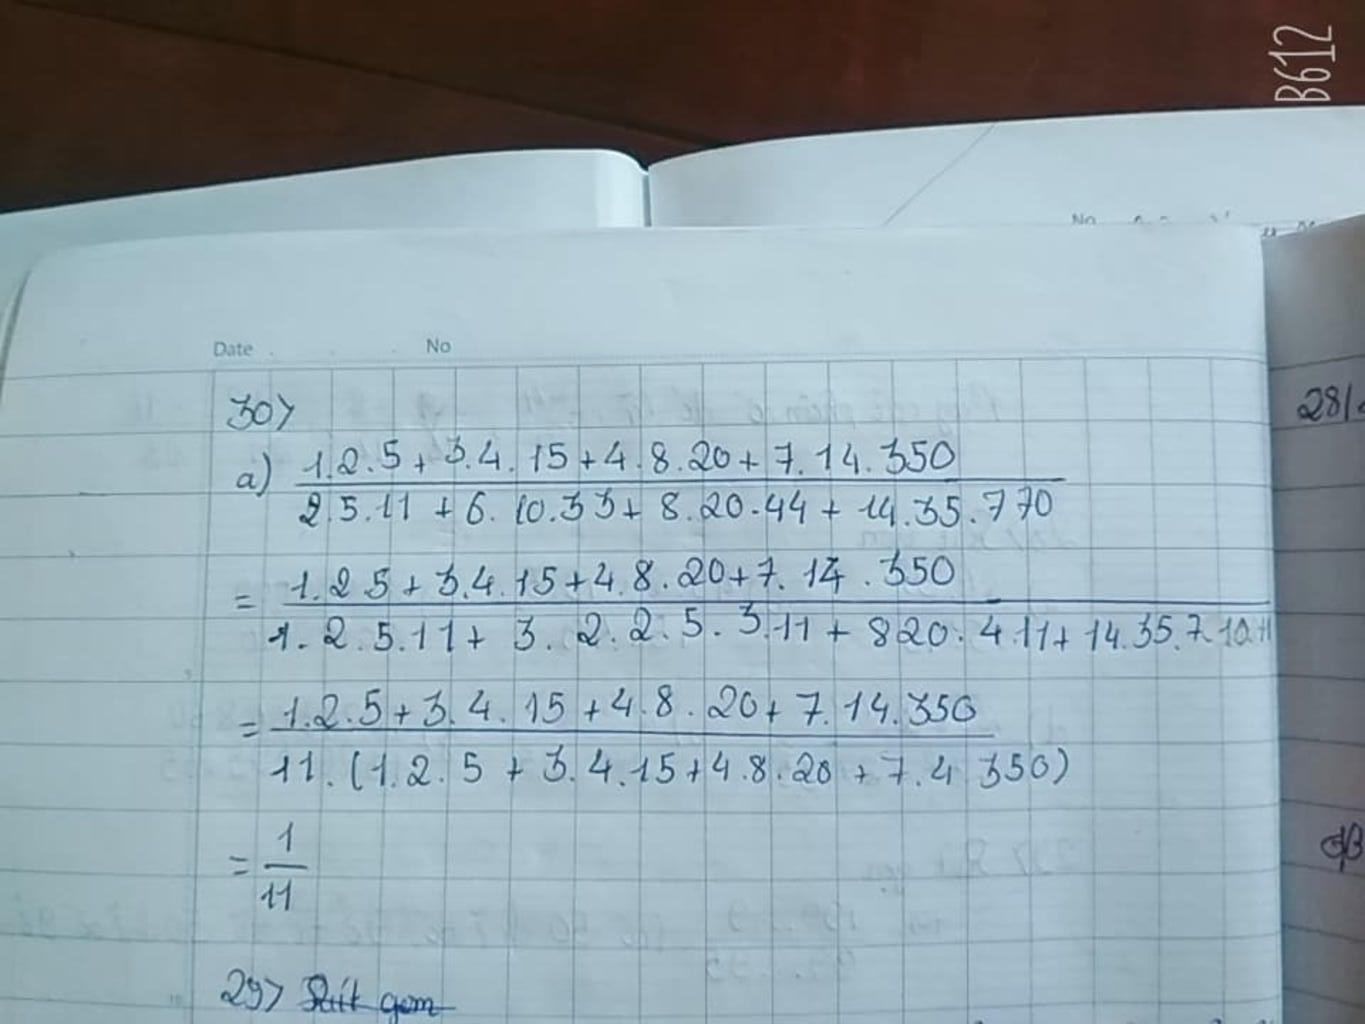 B612
No
Date No
30>
28/
a) 1.2.5 + 3.4.15 + 4.8.20 + 7.14.350
2.5.11 + 6.10.33 + 8.20.44 + 14.35.770
= 1.2.5 + 3.4.15 + 4.8.20 + 7.14.350
1.2.5.11 + 3.2.2.5.3.11 + 820.4.11 + 14.35.7.10.11
= 1.2.5 + 3.4.15 + 4.8.20 + 7.14.350
11.(1.2.5 + 3.4.15 + 4.8.20 + 7.4 350)
= 1
11
29>